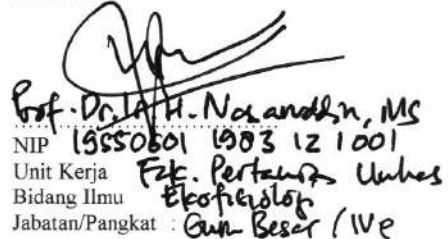 Prof. Dr. Ir. H. Nasaruddin, MS
NIP 19550601 1983 12 1 001
Unit Kerja Fak. Pertanian Unhas
Bidang Ilmu Ekofisiologi
Jabatan/Pangkat : Guru Besar / IVe